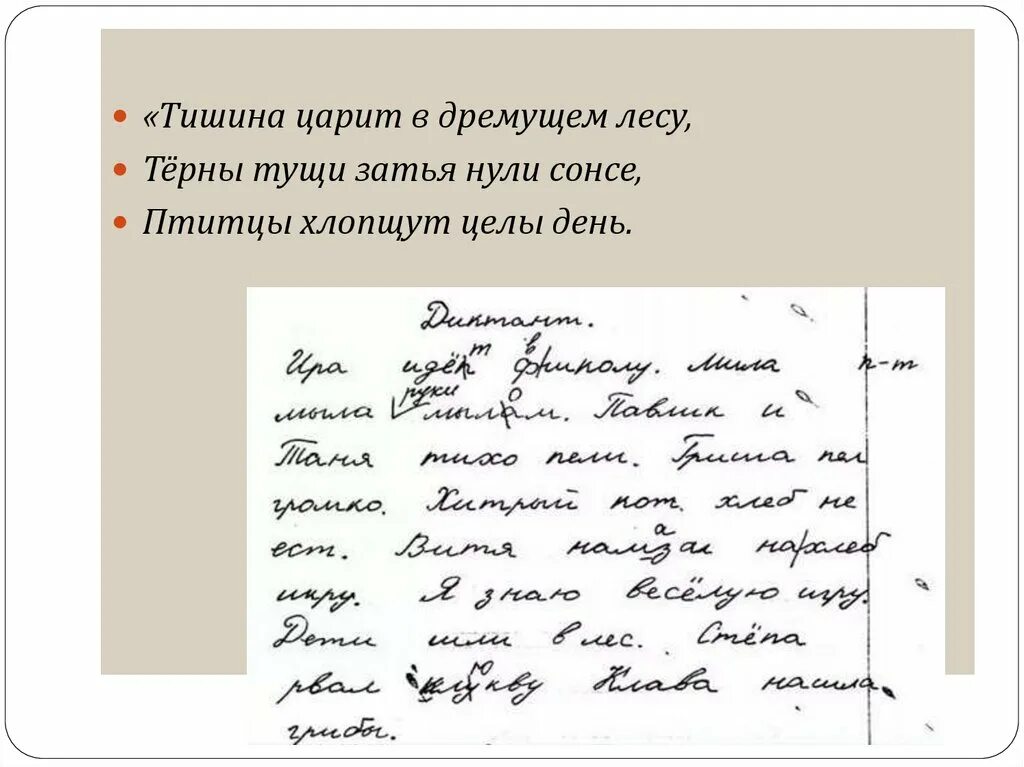 «Тишина царит в дремущем лесу,
Тёрны тущи затья нули сонсе,
Птитцы хлопщут целы день.
Диктант.
т в
Ира идёп фшколу. Мила п-т
руки о
мыла мылам. Павлик и
Таня тихо пели. Гриша пел
громко. Хитрый кот хлеб не
ест. Витя намазал на хлеб
икру. Я знаю весёлую игру.
Дети шли в лес. Стёпа
ю
рвал клукву Клава нашла
грибы.